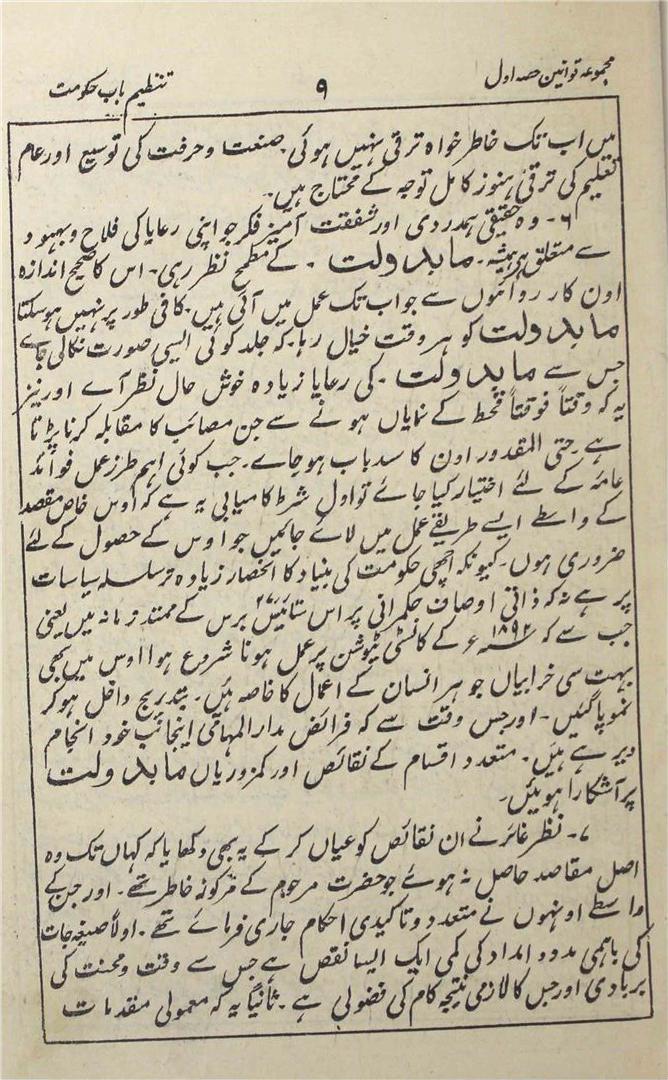 مجموعہ قوانین حصہ اول
۹
تنظیم باب حکومت
میں اب تک خاطر خواہ ترقی نہیں ہوئی ۔ صنعت و حرفت کی توسیع اور عام
تعلیم کی ترقی ہنوز کامل توجہ کے محتاج ہیں۔
۶ - وہ حقیقی ہمدردی اور شفقت آمیز فکر جو اپنی رعایا کی فلاح و بہبود
سے متعلق ہمیشہ ۔ مابدولت ۔ کے مطمح نظر رہی۔ اس کا صحیح اندازہ
اون کارروائیوں سے جو اب تک عمل میں آئی ہیں۔ کافی طور پر نہیں ہو سکتا
مابدولت کو ہر وقت خیال رہا۔ کہ جلد کوئی ایسی صورت نکالی جائے
جس سے مابدولت ۔ کی رعایا زیادہ خوش حال نظر آے اور نیز
یہ کہ وقتاً فوقتاً قحط کے نمایاں ہونے سے جن مصائب کا مقابلہ کرنا پڑتا
ہے حتی المقدور اون کا سدباب ہو جاے۔ جب کوئی اہم طرز عمل فوائد
عامہ کے لئے اختیار کیا جائے تو اول شرط کامیابی یہ ہے کہ اوس خاص مقصد
کے واسطے ایسے طریقے عمل میں لائے جائیں جو اوس کے حصول کے لئے
ضروری ہوں۔ کیونکہ اچھی حکومت کی بنیاد کا انحصار زیادہ تر سلسلہ سیاسات
پر ہے نہ کہ ذاتی اوصاف حکمرانی پر اس ستائیس ۲۷ برس کے ممتد زمانہ میں یعنی
جب سے کہ ۱۸۹۲ء کے کانسٹی ٹیوشن پر عمل ہونا شروع ہوا اوس میں بھی
بہت سی خرابیاں جو ہر انسان کے اعمال کا خاصہ ہیں۔ بتدریج داخل ہو کر
نمو پا گئیں۔ اور جس وقت سے کہ فرائض مدارالمہامی اینجانب خود انجام
دیرہے ہیں۔ متعدد اقسام کے نقائص اور کمزوریاں مابدولت
پر آشکارا ہوئیں۔
۷۔ نظر غائر نے ان نقائص کو عیاں کر کے یہ بھی دکھایا کہ کہاں تک وہ
اصل مقاصد حاصل نہ ہوئے جو حضرت مرحوم کے مرکوز خاطر تھے۔ اور جن کے
واسطے اونہوں نے متعدد و تاکیدی احکام جاری فرمائے تھے ۔ اولاً صیغہ جات
کی باہمی مدد و امداد کی کمی ایک ایسا نقص ہے جس سے وقت و محنت کی
بربادی اور جس کا لازمی نتیجہ کام کی فضولی ہے ۔ ثانیاً یہ کہ معمولی مقدمات